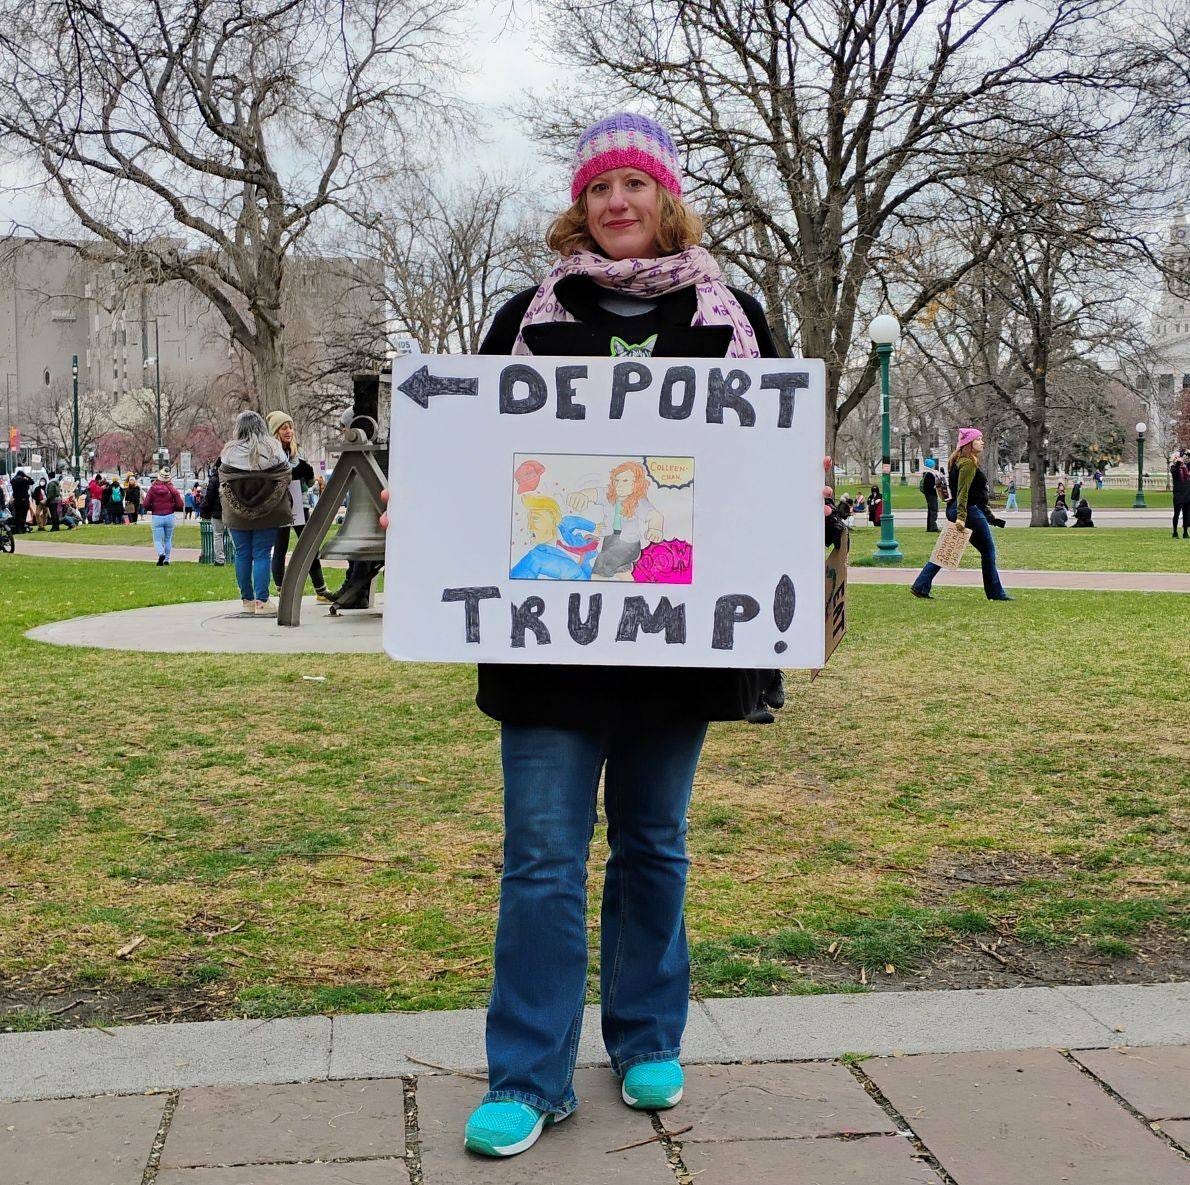 DEPORT
COLLEEN-
CHAN.
POW
TRUMP!